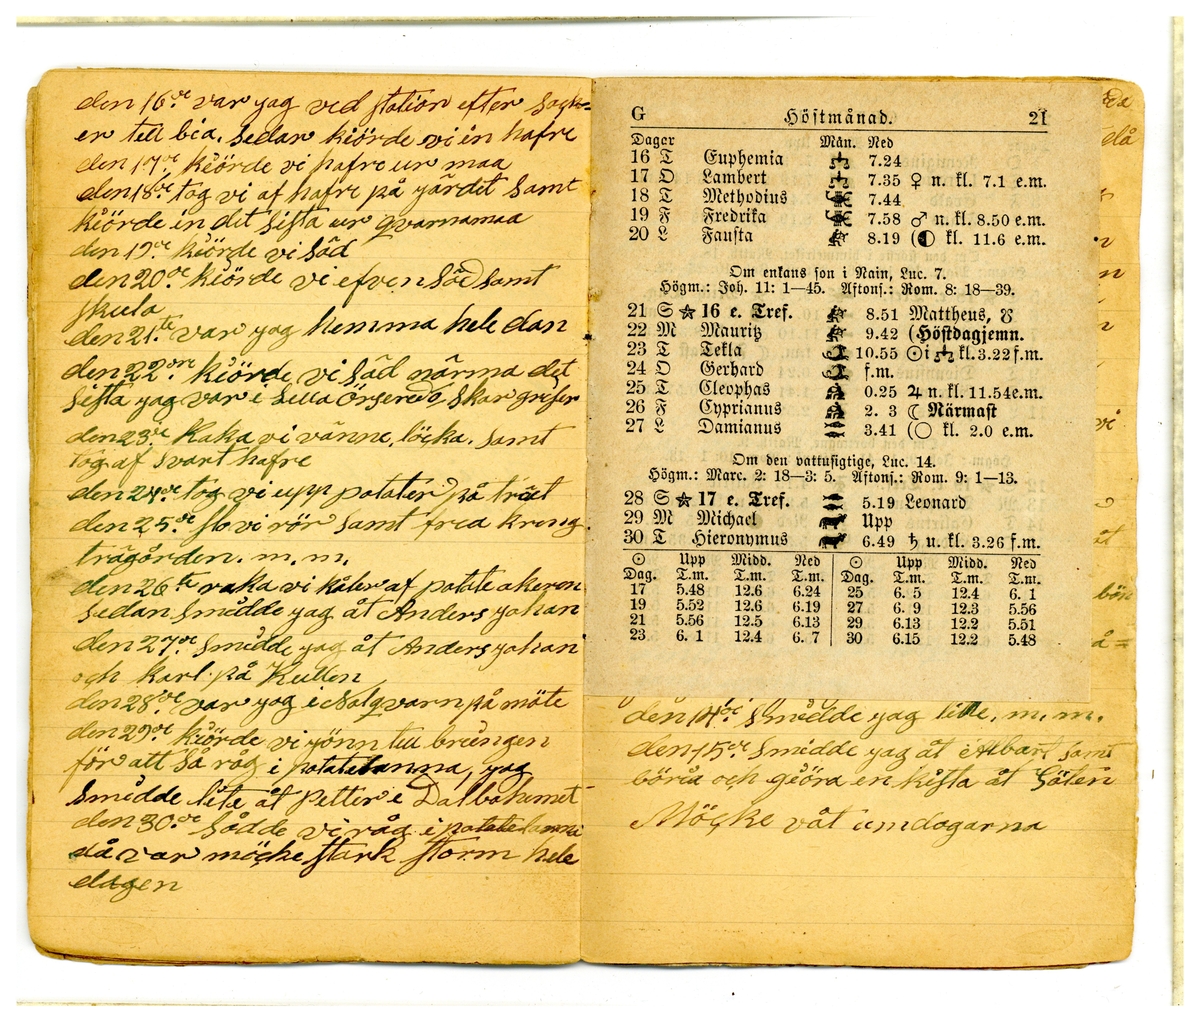 den 16de var jag ved station efter
er till bia. sedan kiörde vi in hafre
den 17de kiörde vi hafre ur maa
den 18de tog vi af hafre på gärdet samt
kiörde in det sista ur qvarnamaa
den 19de kiörde vi säd
den 20de kiörde vi efven säd samt
skula
den 21te var jag hemma hele dan
den 22dre kiörde vi säd närma det
sista jag var i Lilla Örsered o skar grifer
den 23de Raka vi vänne, löcka. samt
tog af svart hafre
den 24de tog vi upp potater på träet
den 25de slo vi rör samt freda kring
trägården. m. m.
den 26te raka vi kåler af potate akeren
sedan smidde jag åt Anders johan
den 27de Smidde jag åt Anders johan
och karl på Kullen
den 28de var jag i Nolqvarn på möte
den 29de kiörde vi jönn till brungen
för att så råg i potatelanna, jag
smidde lite åt Petter i Dalbohemet
den 30de sådde vi råg i potatelanna
då var möcke stark storm hele
dagen
G Höstmånad. 21
Dagar Mån. Ned
16 T Euphemia 7.24
17 O Lambert 7.35 ♀ n. kl. 7.1 e.m.
18 T Methodius 7.44
19 F Fredrika 7.58 ♂ n. kl. 8.50 e.m.
20 L Fausta 8.19 (◐ kl. 11.6 e.m.
Om enkans son i Nain, Luc. 7.
Högm.: Joh. 11: 1—45. Aftons.: Rom. 8: 18—39.
21 S 16 e. Tref. 8.51 Mattheus, ☋
22 M Mauritz 9.42 (Höstdagjemn.
23 T Tekla 10.55 ☉ i ♎ kl. 3.22 f.m.
24 O Gerhard f.m.
25 T Cleophas 0.25 ♃ n. kl. 11.54 e.m.
26 F Cyprianus 2. 3 ☾ Närmast
27 L Damianus 3.41 (○ kl. 2.0 e.m.
Om den vattusigtige, Luc. 14.
Högm.: Marc. 2: 18—3: 5. Aftons.: Rom. 9: 1—13.
28 S 17 e. Tref. 5.19 Leonard
29 M Michael Upp
30 T Hieronymus 6.49 ♄ u. kl. 3.26 f.m.
☉ Upp Midd. Ned ☉ Upp Midd. Ned
Dag. T.m. T.m. T.m. Dag. T.m. T.m. T.m.
17 5.48 12.6 6.24 25 6. 5 12.4 6. 1
19 5.52 12.6 6.19 27 6. 9 12.3 5.56
21 5.56 12.5 6.13 29 6.13 12.2 5.51
23 6. 1 12.4 6. 7 30 6.15 12.2 5.48
den 14de smidde jag lite. m. m.
den 15de smidde jag åt Albart samt
böria och giöra en kista åt Göten
Möcke våt umdagarna